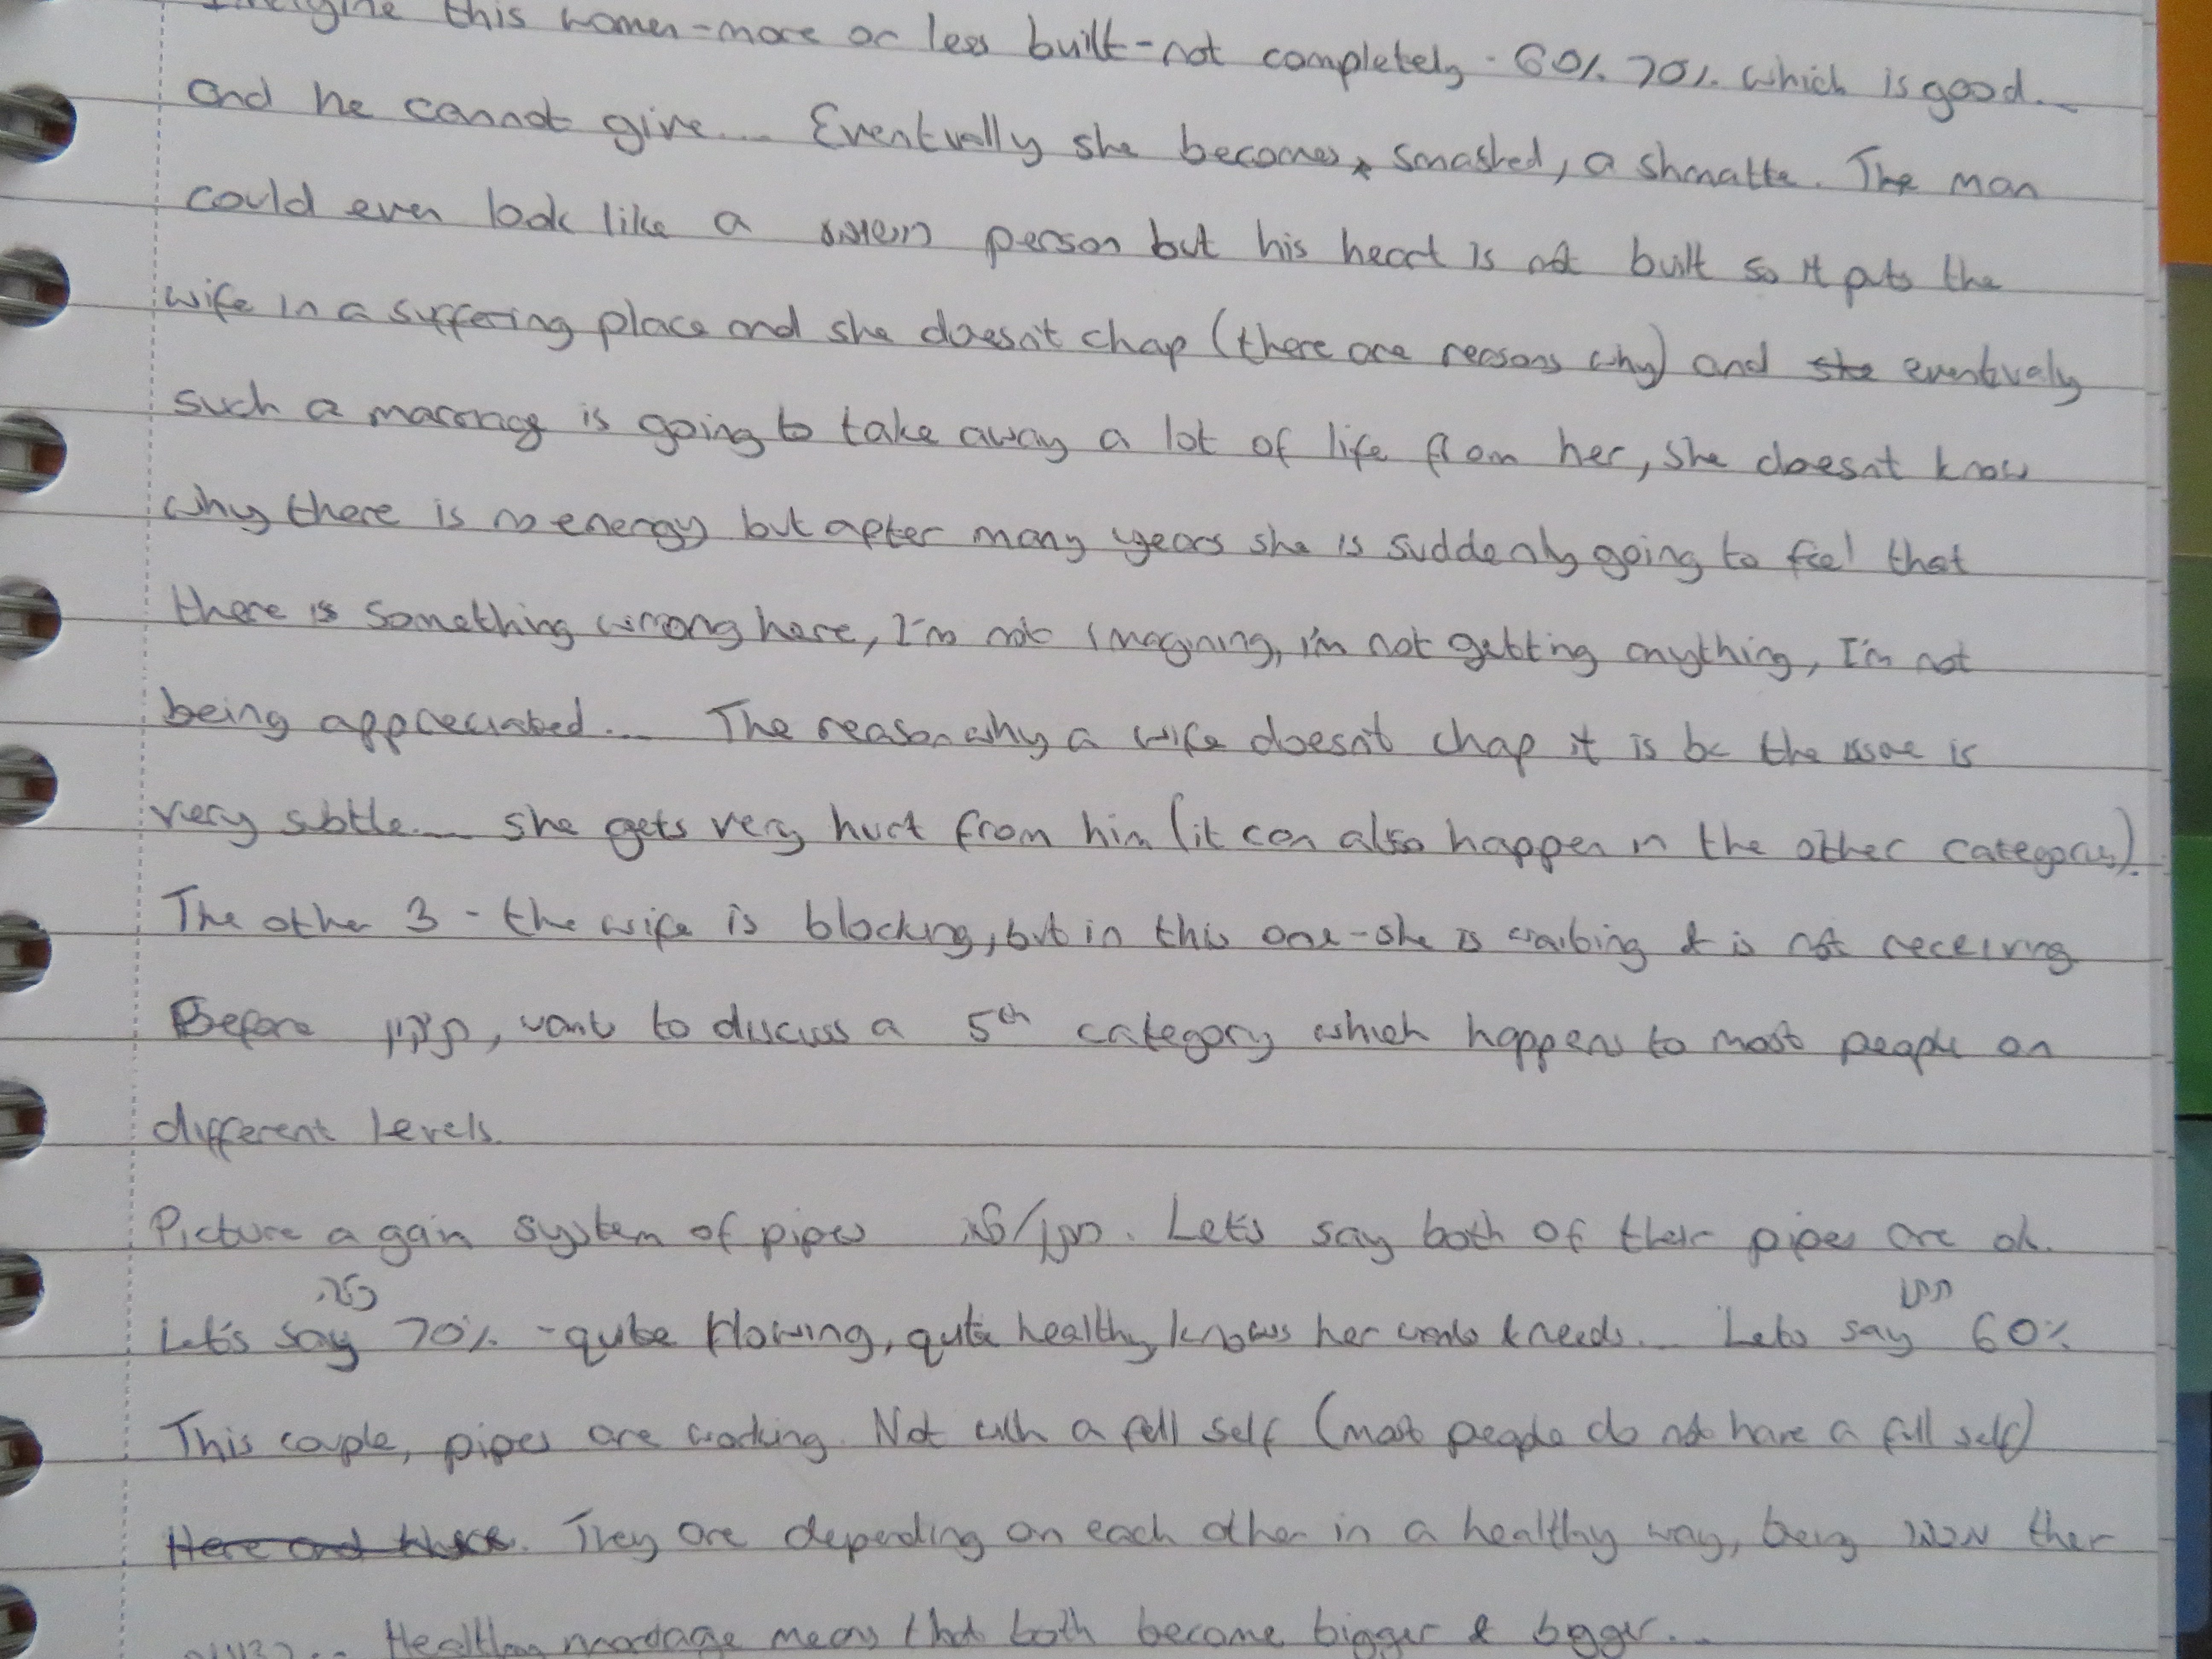 Imagine this women-more or less built-not completely - 60% 70% which is good...
and he cannot give.... Eventually she becomes smashed, a shmatte. The man
could even look like a person but his heart is not built so it puts the
wife in a suffering place and she doesn't chap (there are reasons why) and she eventualy
such a marriage is going to take away a lot of life from her, she doesnt know
why there is no energy but after many years she is suddenly going to feel that
there is something wrong here, I'm not imagining, i'm not getting anything, I'm not
being appreciated.... The reason why a wife doesn't chap it is bc the issue is
very subtle.... she gets very hurt from him (it can also happen in the other categories).
The other 3 - the wife is blocking, but in this one - she is waiting & is not receiving
Before תיקון, want to discuss a 5th category which happens to most people on
different levels.
Picture again system of pipes כלה/חתן. Let's say both of their pipes are ok.
כלה חתן
Let's say 70% - quite flowing, quite healthy, knows her wants & needs.... Lets say 60%
This couple, pipes are working. Not with a full self (most people do not have a full self)
Here and there. They are depending on each other in a healthy way, being ther
Healthy marriage means that both become bigger & bigger...